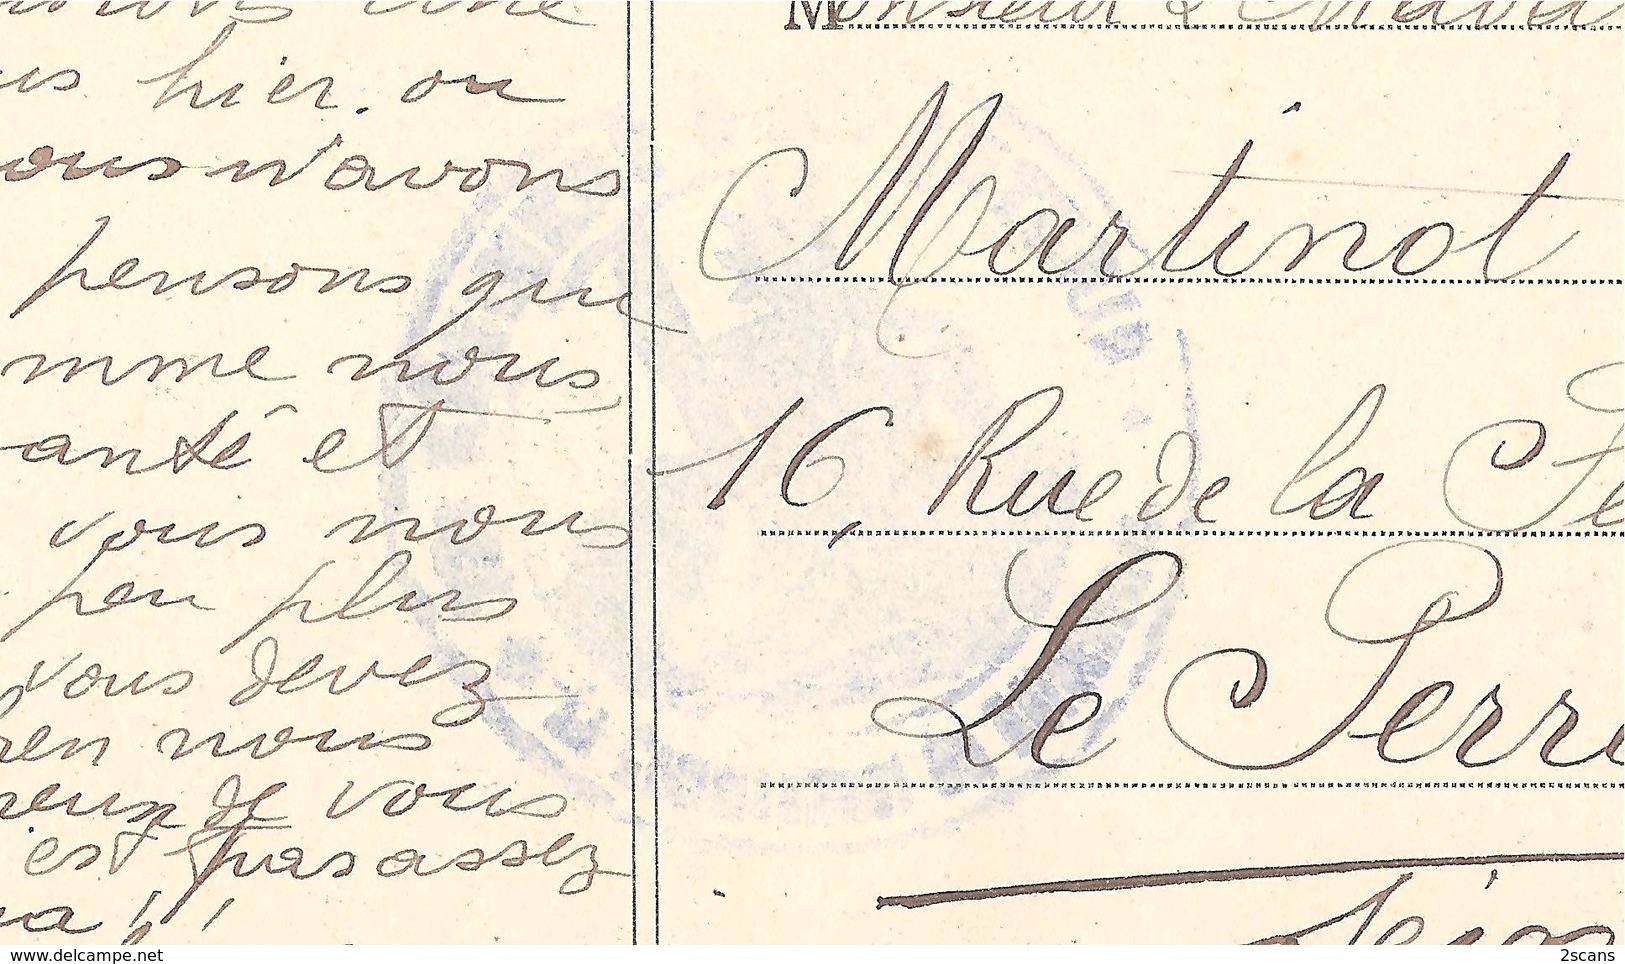 une
us hier. ou
ous n'avons
pensons que
mme nous,
anté et
vous nous
peu plus
vous devez
ien nous
reux de vous
est pas assez
a!!
Monsieur &
Martinot
16, Rue de la
Le Perre
www.delcampe.net
2scans